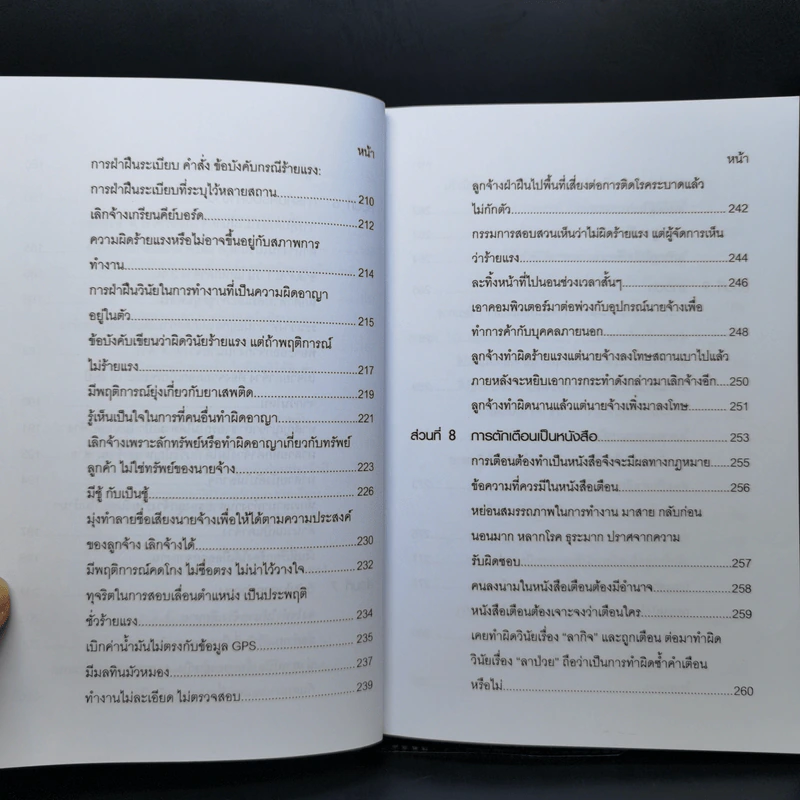 หน้า
การฝ่าฝืนระเบียบ คำสั่ง ข้อบังคับกรณีร้ายแรง:
การฝ่าฝืนระเบียบที่ระบุไว้หลายสถาน.....................210
เลิกจ้างเกรียนคีย์บอร์ด.....................212
ความผิดร้ายแรงหรือไม่อาจขึ้นอยู่กับสภาพการ
ทำงาน.....................214
การฝ่าฝืนวินัยในการทำงานที่เป็นความผิดอาญา
อยู่ในตัว.....................215
ข้อบังคับเขียนว่าผิดวินัยร้ายแรง แต่ถ้าพฤติการณ์
ไม่ร้ายแรง.....................217
มีพฤติการณ์ยุ่งเกี่ยวกับยาเสพติด.....................219
รู้เห็นเป็นใจในการที่คนอื่นทำผิดอาญา.....................221
เลิกจ้างเพราะลักทรัพย์หรือทำผิดอาญาเกี่ยวกับทรัพย์
ลูกค้า ไม่ใช่ทรัพย์ของนายจ้าง.....................223
มีชู้ กับเป็นชู้.....................226
มุ่งทำลายชื่อเสียงนายจ้างเพื่อให้ได้ตามความประสงค์
ของลูกจ้าง เลิกจ้างได้.....................230
มีพฤติการณ์คดโกง ไม่ซื่อตรง ไม่น่าไว้วางใจ.....................232
ทุจริตในการสอบเลื่อนตำแหน่ง เป็นประพฤติ
ชั่วร้ายแรง.....................234
เบิกค่าน้ำมันไม่ตรงกับข้อมูล GPS.....................235
มีมลทินมัวหมอง.....................237
ทำงานไม่ละเอียด ไม่ตรวจสอบ.....................239
หน้า
ลูกจ้างฝ่าฝืนไปพื้นที่เสี่ยงต่อการติดโรคระบาดแล้ว
ไม่กักตัว.....................242
กรรมการสอบสวนเห็นว่าไม่ผิดร้ายแรง แต่ผู้จัดการเห็น
ว่าร้ายแรง.....................244
ละทิ้งหน้าที่ไปนอนช่วงเวลาสั้นๆ.....................246
เอาคอมพิวเตอร์มาต่อพ่วงกับอุปกรณ์นายจ้างเพื่อ
ทำการค้ากับบุคคลภายนอก.....................248
ลูกจ้างทำผิดร้ายแรงแต่นายจ้างลงโทษสถานเบาไปแล้ว
ภายหลังจะหยิบเอาการกระทำดังกล่าวมาเลิกจ้างอีก.....250
ลูกจ้างทำผิดนานแล้วแต่นายจ้างเพิ่งมาลงโทษ.....................251
ส่วนที่ 8 การตักเตือนเป็นหนังสือ.....................253
การเตือนต้องทำเป็นหนังสือจึงจะมีผลทางกฎหมาย.....................255
ข้อความที่ควรมีในหนังสือเตือน.....................256
หย่อนสมรรถภาพในการทำงาน มาสาย กลับก่อน
นอนมาก หลากโรค ธุระมาก ปราศจากความ
รับผิดชอบ.....................257
คนลงนามในหนังสือเตือนต้องมีอำนาจ.....................258
หนังสือเตือนต้องเจาะจงว่าเตือนใคร.....................259
เคยทำผิดวินัยเรื่อง "ลากิจ" และถูกเตือน ต่อมาทำผิด
วินัยเรื่อง "ลาป่วย" ถือว่าเป็นการทำผิดซ้ำคำเตือน
หรือไม่.....................260